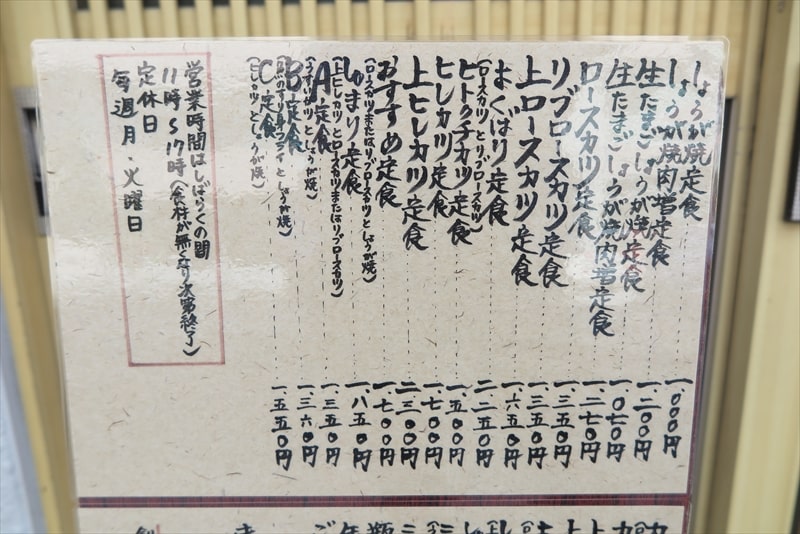 しょうが焼定食 一、〇〇〇円
しょうが焼肉増定食 一、二〇〇円
生たまごしょうが焼定食 一、〇七〇円
生たまごしょうが焼肉増定食 一、二七〇円
ロースカツ定食 一、三五〇円
リブロースカツ定食 一、三五〇円
上ロースカツ定食 一、六五〇円
よくばり定食 二、二五〇円
(ロースカツとリブロースカツ)
ヒトクチカツ定食 一、五〇〇円
ヒレカツ定食 一、七〇〇円
上ヒレカツ定食 二、三〇〇円
おすすめ定食 一、七〇〇円
(ロースカツまたはリブロースカツとしょうが焼)
定食 一、八五〇円
(上ヒレカツとロースカツまたはリブロースカツ)
A定食 一、三五〇円
カツとしょうが焼)
B定食 一、三六〇円
フライとしょうが焼)
C定食 一、五五〇円
カツとしょうが焼)
営業時間はしばらくの間
11時〜17時(食材が無くなり次第終了)
定休日
毎週月・火曜日